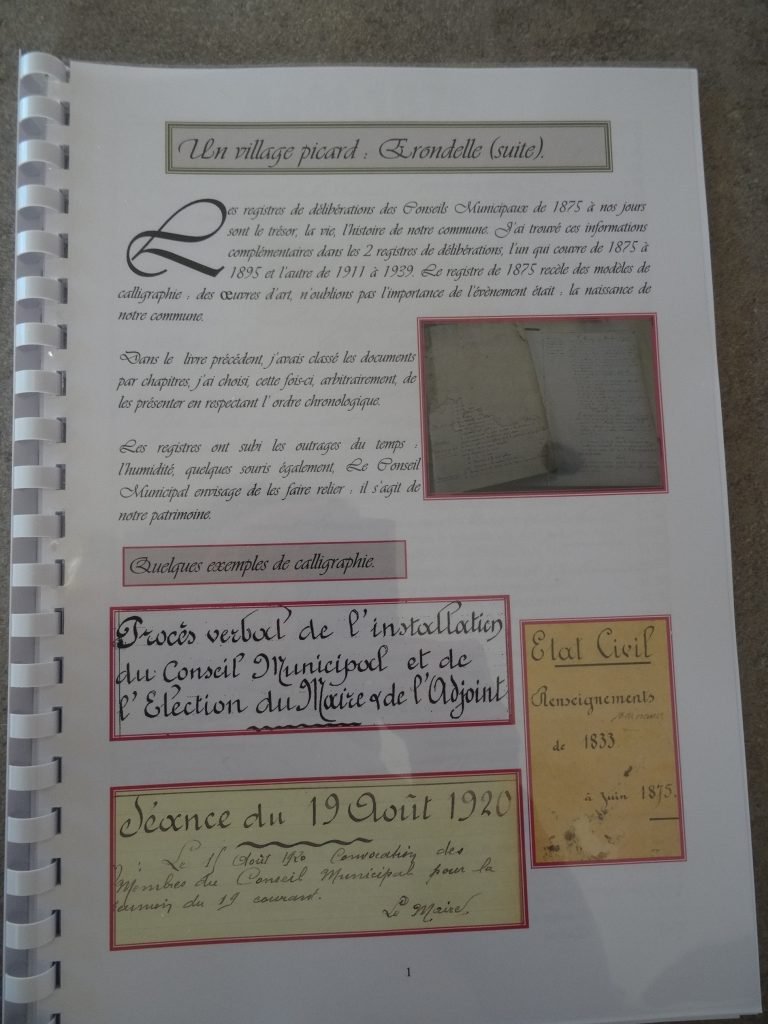 Un village picard : Erondelle (suite).
Les registres de délibérations des Conseils Municipaux de 1875 à nos jours
sont le trésor, la vie, l'histoire de notre commune. J'ai trouvé ces informations
complémentaires dans les 2 registres de délibérations, l'un qui couvre de 1875 à
1895 et l'autre de 1911 à 1939. Le registre de 1875 recèle des modèles de
calligraphie : des œuvres d'art, n'oublions pas l'importance de l'évènement était : la naissance de
notre commune.
Dans le livre précédent, j'avais classé les documents
par chapitres, j'ai choisi, cette fois-ci, arbitrairement, de
les présenter en respectant l' ordre chronologique.
Les registres ont subi les outrages du temps :
l'humidité, quelques souris également, Le Conseil
Municipal envisage de les faire relier : il s'agit de
notre patrimoine.
Quelques exemples de calligraphie.
Procès verbal de l'installation
du Conseil Municipal et de
l'Election du Maire & de l'Adjoint
Etat Civil
Renseignements
de 1833
à Juin 1875.
Séance du 19 Août 1920
Le 15 Août 1920 Convocation des
Membres du Conseil Municipal pour la
du 19 courant.
Le Maire,
1